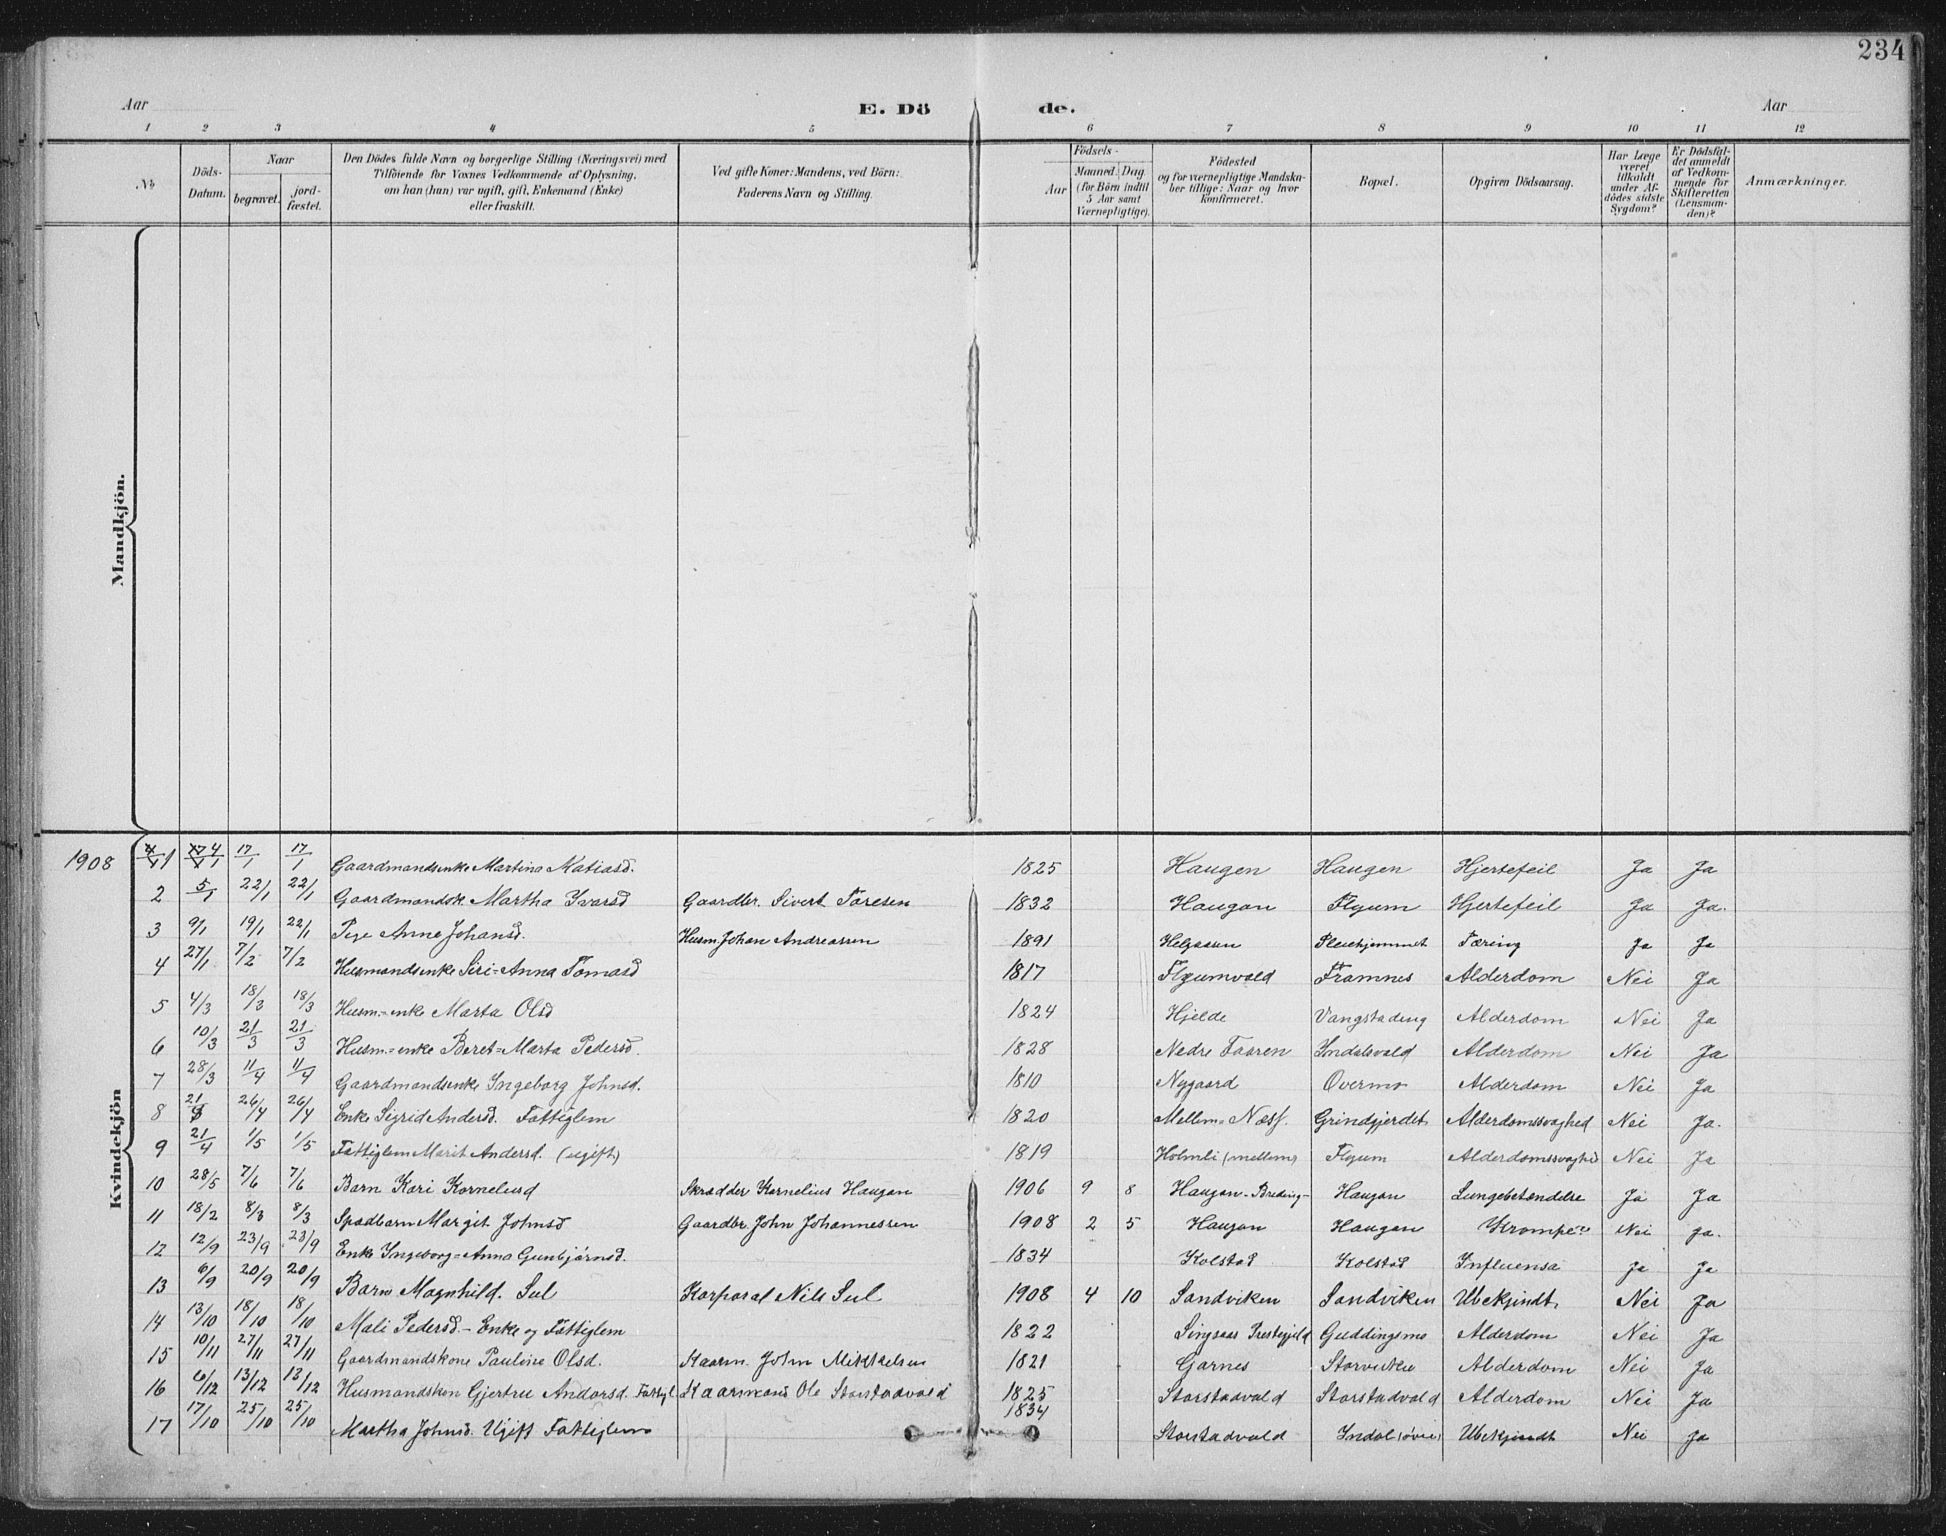 234
Aar E. Dö de. Aar
1 2 3 4 5 6 7 8 9 10 11 12
No
Döds-Datum.
Naar
begravet.
jord-fæstet.
Den Dödes fulde Navn og borgerlige Stilling (Næringsvei) med
Tilföiende for Voxnes Vedkommende af Oplysning,
om han (hun) var ugift, gift, Enkemand (Enke)
eller fraskilt.
Ved gifte Koner: Mandens, ved Börn:
Faderens Navn og Stilling.
Födsels-
Aar
Maaned. Dag.
(for Börn indtil
5 Aar samt
Værnepligtige).
Födested
og for værnepligtige Mandska-
ber tillige: Naar og hvor
konfirmeret.
Bopæl.
Opgiven Dödsaarsag.
Har Læge
været
tilkaldt
under Af-
dödes sidste
Sygdom?
Er Dödsfal-
det anmeldt
af Vedkom-
mende for
Skifteretten
(Lensman-
den)?
Anmærkninger.
Mandkjön.
Kvindekjön
1908 1 4/1 17/1 17/1 Gaardmandsenke Martina Matiasd. 1825 Haugen Haugen Hjertefeil Ja Ja
2 5/1 22/1 22/1 Gaardmandsk Martha Ivarsd Gaardbr. Sivert Toresen 1832 Haugan Flyum Hjertefeil Ja Ja.
3 9/1 19/1 22/1 Pige Anne Johansd. Husm. Johan Andreassen 1891 Helgaasen Pleiehjemmet Tæring Ja Ja
4 27/1 7/2 7/2 Husmandsenke Siri-Anna Tomasd 1817 Flyumvald Framnes Alderdom Nei Ja
5 4/3 18/3 18/3 Husm.-enke Marta Olsd 1824 Hjelde Vangstadeng Alderdom Nei Ja
6 10/3 21/3 21/3 Husm.-enke Beret-Marta Pedersd. 1828 Nedre Faaren Indalsvald Alderdom Nei Ja
7 28/3 11/4 11/4 Gaardmandsenke Ingeborg Johnsd. 1810 Nygaard Overmo Alderdom Nei Ja
8 21/ 26/4 26/4 Enke Sigrid Andersd. Fattiglem 1820 Mellem-Næss. Grindgjerdet Alderdomssvaghed Nei Ja.
9 21/4 1/5 1/5 Fattiglem Marit Andersd. (ugift) 1819 Holmli (mellem) Flyum Alderdomssvaghed Nei Ja
10 28/5 7/6 7/6 Barn Kari Kornelusd Skrædder Kornelius Haugan 1906 9 8 Haugan-Breding- Haugan Lungebetændelse Ja Ja
11 18/2 8/3 8/3 Spædbarn Margit Johnsd Gaardbr. John Johannessen 1908 2 5 Haugan Haugan Krampe? Nei Ja.
12 12/9 23/9 23/9 Enke Ingeborg-Anna Gunbjörnsd. 1834 Kolstad Kolstad Influensa Ja Ja
13 6/9 20/9 20/9 Barn Magnhild. Sul Korporal Nils Sul 1908 4 10 Sandviken Sandviken Ubekjendt, Nei Ja
14 13/10 18/10 18/10 Mali Pedersd - Enke og Fattiglem 1822 Singsaas Prestegjeld Guddingsmo Alderdom Nei Ja
15 10/11 27/11 27/11 Gaardmandskone Pauline Olsd. Kaarm. John Mikkelsen 1821 Garnes Storviken Alderdom Nei Ja
16 6/12 13/12 13/12 Husmandskon Gjertru Andersd. Fattigl. Kaarmand Ole Storstadvald 1825 Storstadvald Storstadvald Alderdom Nei Ja
17 17/10 25/10 25/10 Martha Johnsd. Ugift Fattiglem 1834 Storstadvald Indal (övre) Ubekjendt Nei Ja